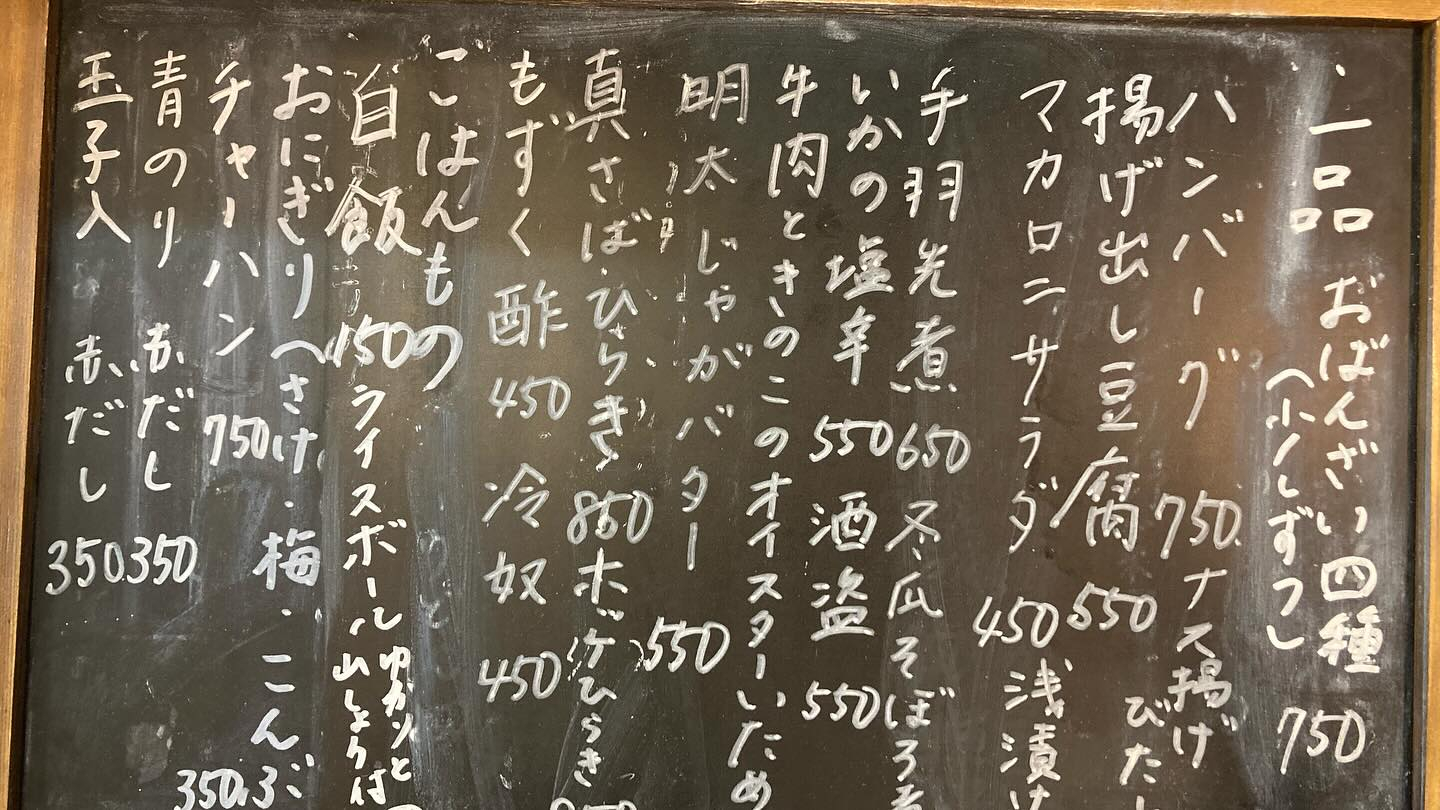 一品 おばんざい四種 750
(少しずつ)
ハンバーグ 750 ナス揚げびたし
揚げ出し豆腐 550
マカロニサラダ 450 浅漬け
手羽先煮 650 冬瓜そぼろ煮
いかの塩辛 550 酒盗 550
牛肉ときのこのオイスターいため
明太じゃがバター 550
真さば・ひらき 850 ホッケひらき
もずく酢 450 冷奴 450
ごはんもの
白飯 150 ライスボール ゆかりと
山しょう付
おにぎり(さけ・梅・こんぶ 350
チャーハン 750
青のり 赤だし 350
玉子入 赤だし 350